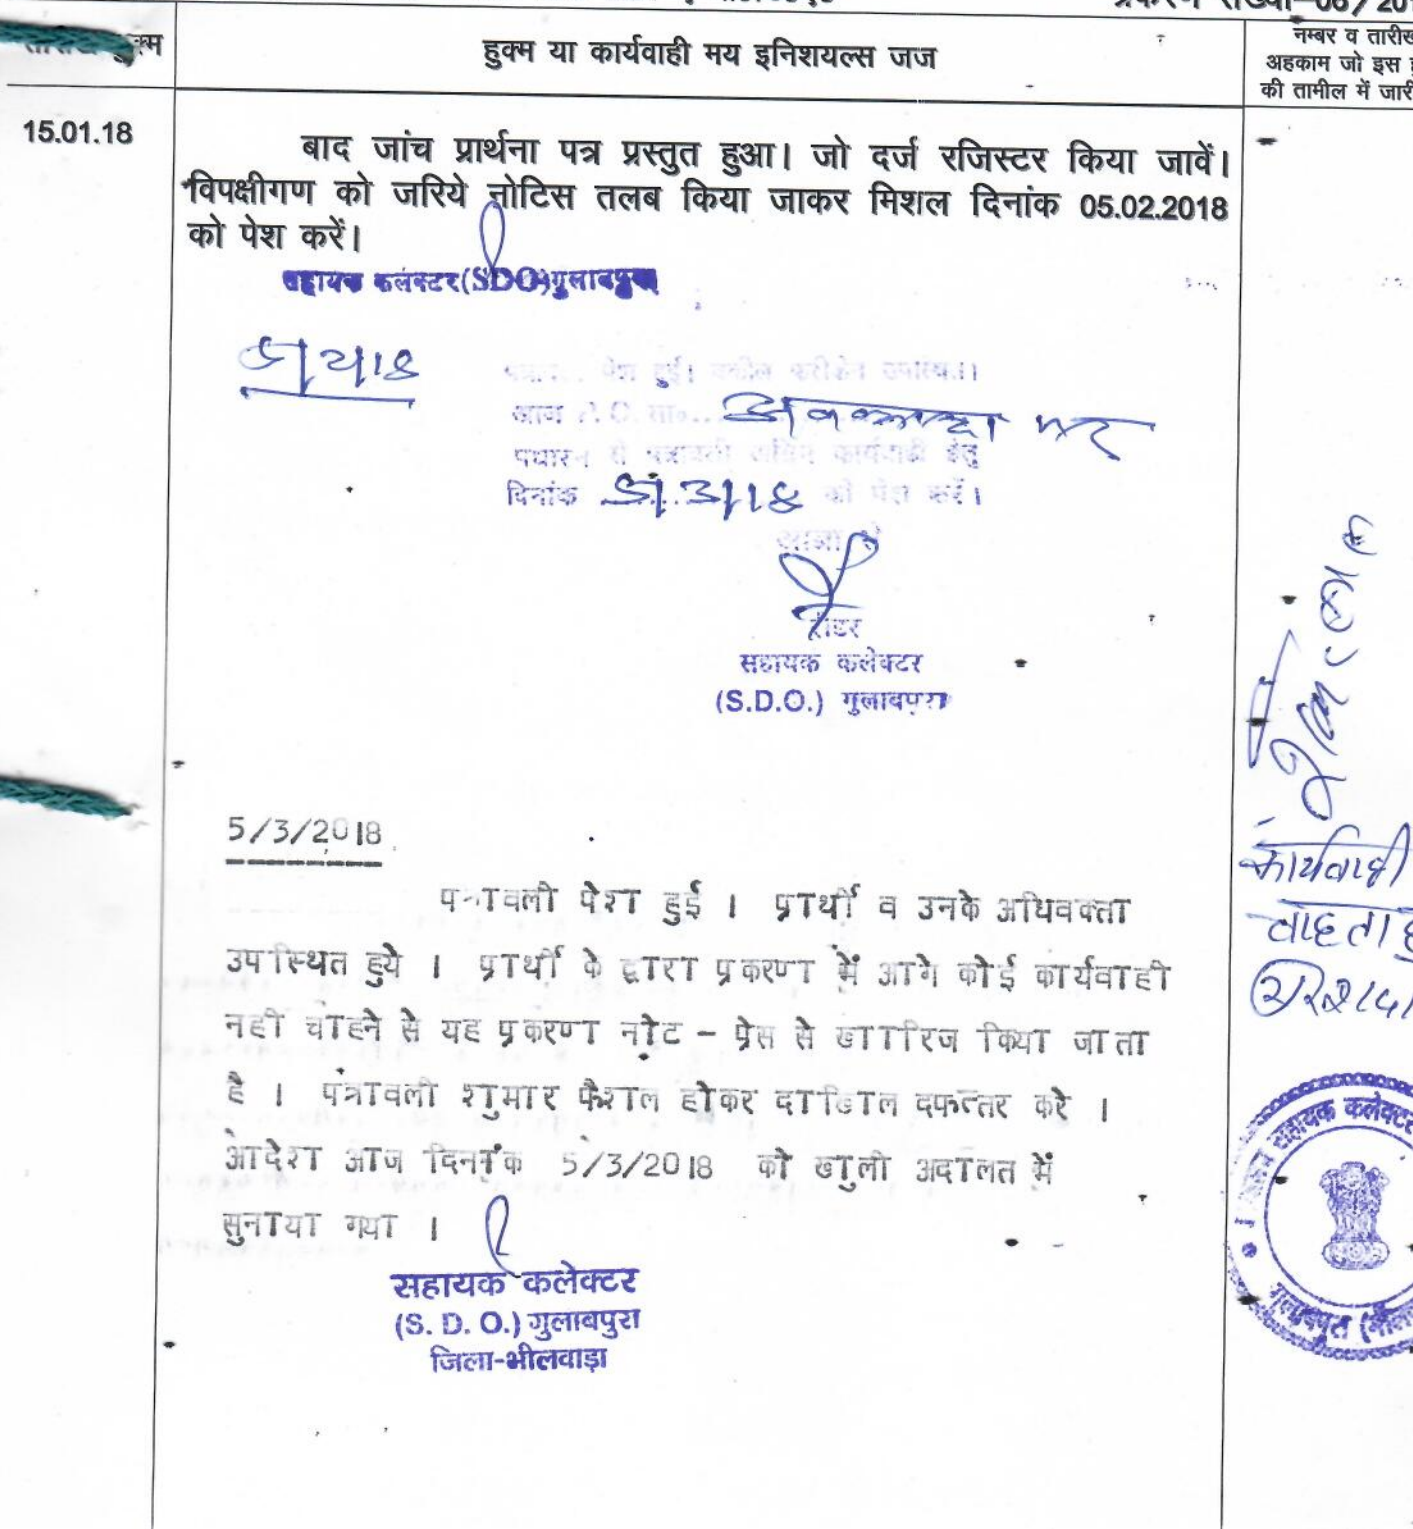 प्रकरण संख्या-06/201
तारीख हुक्म
हुक्म या कार्यवाही मय इनिशयल्स जज
नम्बर व तारीख
अहकाम जो इस
की तामील में जारी
15.01.18
बाद जांच प्रार्थना पत्र प्रस्तुत हुआ। जो दर्ज रजिस्टर किया जावें।
विपक्षीगण को जरिये नोटिस तलब किया जाकर मिशल दिनांक 05.02.2018
को पेश करें।
सहायक कलेक्टर(SDO)गुलाबपुरा
पेश हुई। वकील फरीकेन उपस्थित।
आज P.O. सा०.. अवकाश पर
पधारने से पत्रावली अग्रिम कार्यवाही हेतु
दिनांक को पेश करें।
आज्ञा से
रीडर
सहायक कलेक्टर
(S.D.O.) गुलाबपुरा
5/3/2018
पत्रावली पेश हुई । प्रार्थी व उनके अधिवक्ता
उपस्थित हुये । प्रार्थी के द्वारा प्रकरण में आगे कोई कार्यवाही
नहीं चाहने से यह प्रकरण नोट - प्रेस से खारिज किया जाता
है । पत्रावली शुमार फैशल होकर दाखिल दफ्तर करे ।
आदेश आज दिनांक 5/3/2018 को खुली अदालत में
सुनाया गया ।
सहायक कलेक्टर
(S. D. O.) गुलाबपुरा
जिला-भीलवाड़ा
कार्यवाही
चाहता
सहायक कलेक्टर